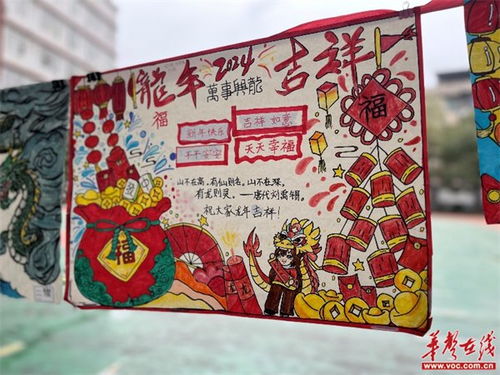 龍年 2024 吉祥
萬事興龍
福
新年快乐
吉祥如意
平平安安
天天幸福
福
山不在高,有仙则名,山不在深,
有龙则灵。——唐代刘禹锡
祝大家龙年吉祥!
福
福
华声在线
www.voc.com.cn